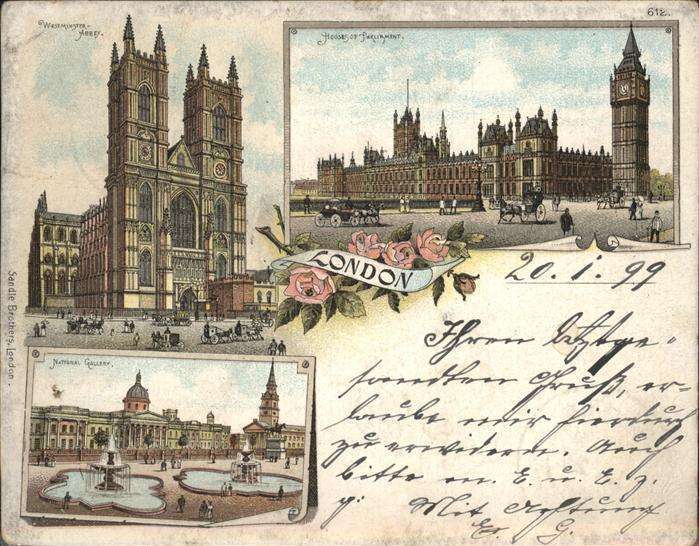 612.
WESTMINSTER-
ABBEY.
HOUSES OF PARLIAMENT.
LONDON
NATIONAL GALLERY.
Sandle Brothers, London.
20. 1. 99
Ihren letztge-
sandten Gruß, er-
laube mir hierdurch
zu erwidern. Auch
bitte m. E. u. E. z.
Mit Achtung
E. G.